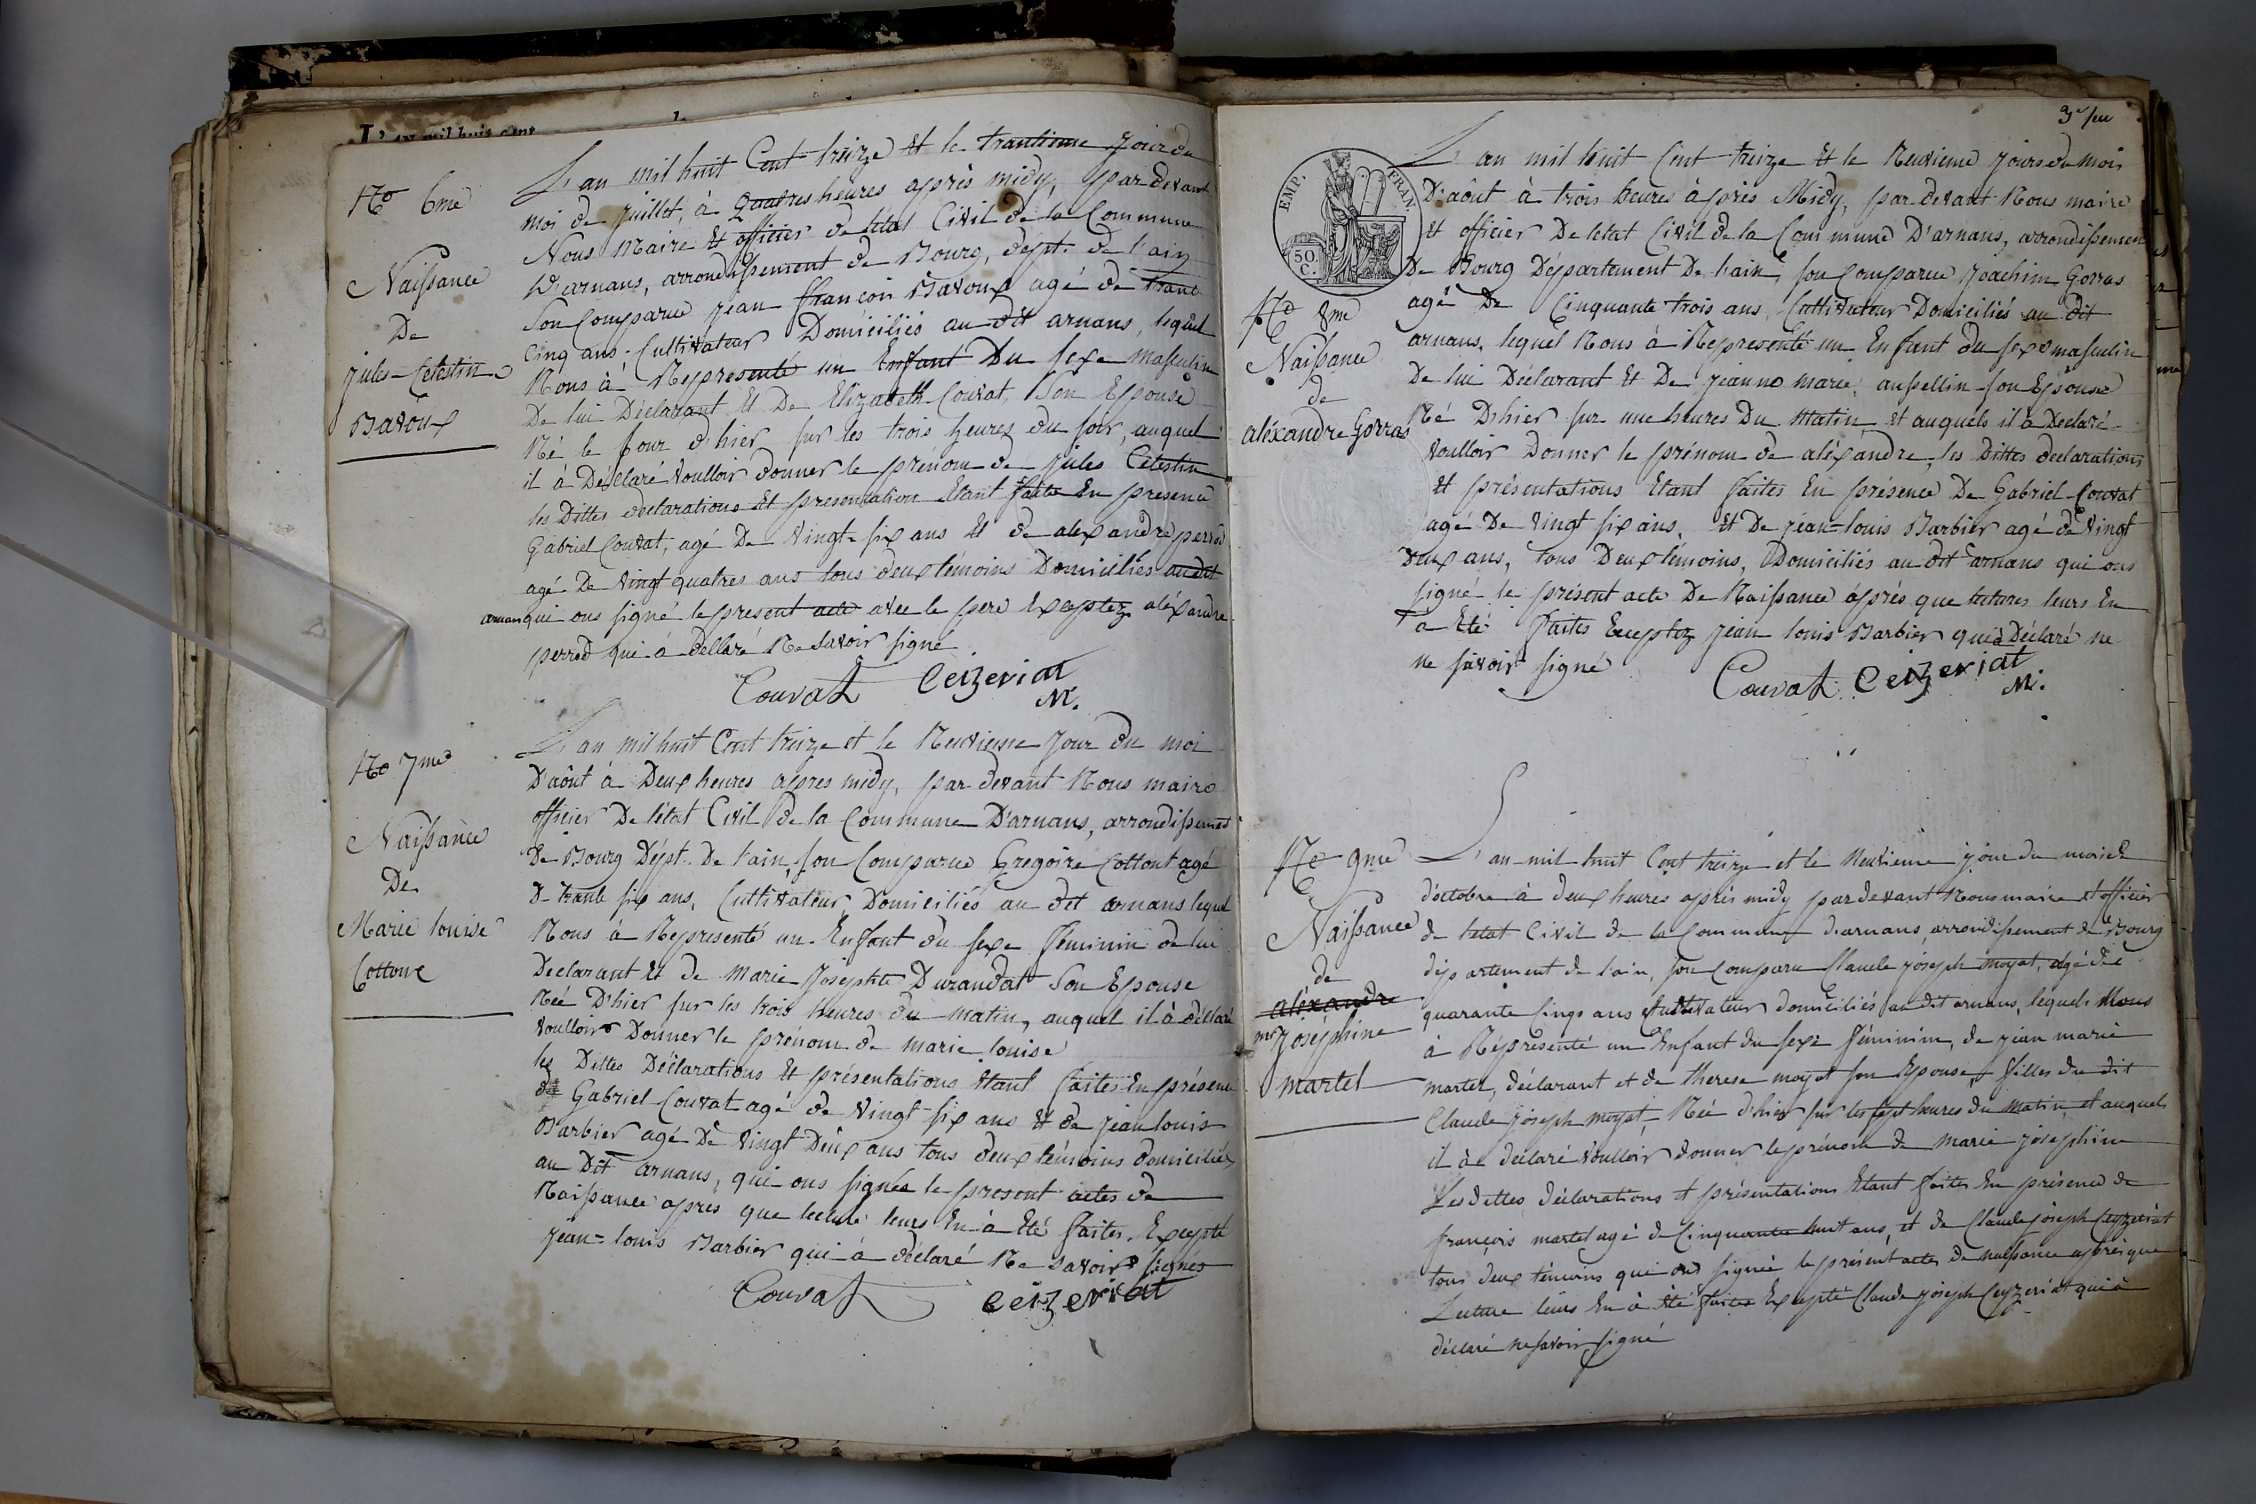 L'an mil huit cent
No 6me
Naissance
De
Jules-Celestin
Bavoux
L'an mil huit Cent treize Et le trantieme Jour du
moi de Juillet, à quatres heures après midy, par devant
Nous Maire Et officier de létat Civil de la Commune
D'arnans, arrondissement de Bourg, dépt. de l'ain
Son Comparue Jean françois Bavoux agé de trant
Cinq ans, Cultivateur Domiciliés au dit arnans, lequel
Nous à Représenté un Enfant Du sexe masculin
De lui Déclarant Et De Elizabeth Couvat, Son Epouse
Né le Jour d'hier sur les trois heures du soir, auquel
il à Décclaré voulloir donner le prénom de Jules Célestin
les Dittes declarations Et presentation Etant faite En presence
Gabriel Couvat, agé De Vingt-six ans Et de alexandre perrod
agé De Vingt quatres ans tous deux témoins Domiciliés audit
arnans qui ons signé le present acte avec le pere Exceptez aléxandre
perrod qui à dellaré Ne savoir signé
Couvat Ceizeriat
M.
No 7me
Naissance
De
Marie louise
Cottone
L'an mil huit Cent treize et le Neuvieme Jour du moi
D'aôut à Deux heures àpres midy, par devant Nous maire
officier De létat Civil de la Commune D'arnans, arrondissement
De Bourg Dépt. De l'ain, son Comparue Gregoire Cottont agé
De trante six ans, Cultivateur, Domiciliés au dit arnans lequel
Nous à Representé un Enfant du sexe féminin de lui
Declarant Et de Marie Josephte Durandat Son Epouse
Née D'hier sur les trois heures du matin, auquel il à déclaré
voulloir Donner le prénom de marie louise
les Dittes Déclarations Et présentations Etant faites En présence
de Gabriel Couvat agé de Vingt-six ans Et de Jean louis
Barbier agé De Vingt Deux ans tous deux témoins domiciliés
au Dit arnans, qui ons signée le present actes de
Naissance après que lecture leurs En à Eté faites, Excepté
Jean-louis Barbier qui à déclaré Ne savoir signés
Couvat Ceizeriat
3e feu
EMP. FRAN.
50. C.
No 8me
Naissance
de
aléxandre Gorras
L'an mil huit Cent treize Et le Neuvieme Jours du Mois
D'aôut à trois heures àprès Midy, par devant Nous maire
Et officier De létat Civil de la Commune D'arnans, arrondissement
De Bourg Département De l'ain, son Comparue Joachim Gorras
agé De Cinquante trois ans, Cultivateur Domiciliés au dit
arnans, lequel Nous à Représenté un Enfant du sexe masculin
De lui Déclarant Et De Jeanne marie aussellin son Epouse
Né D'hier sur une heures Du Matin, Et auquels il à Declaré
voulloir Donner le prénom de aléxandre, les Dittes declarations
Et présentations Etant faites En présence De Gabriel Couvat
agé De Vingt six ans, Et De Jean-louis Barbier agé de Vingt
Deux ans, tous Deux témoins, Domiciliés au dit arnans qui ons
signé le présent acte De Naissance àprès que lectures leurs En
a Eté faites Exceptez Jean louis Barbier qui à Déclaré ne
ne savoir signé
Couvat Ceizeriat
M.
No 9me
Naissance
de
alexandre
me Joséphine
martel
L'an mil huit Cent treize et le Neuvieme jour du mois
d'octobre à deux heures après midy par devant Nous maire et officier
de létat Civil de la Commune d'arnans, arrondissement de Bourg
département de l'ain, son Comparu Claude joseph moyat, agé de
quarante cinqs ans Cultivateur domiciliés au dit arnans, lequels Nous
à Réprésenté un Enfant du sexe féminim, de jean marie
martel, déclarant et de therese moyat son Epouse, filles du dit
Claude joseph moyat, Née d'hier sur les sept heures du matin, et auquels
il à déclaré voulloir donner le prénom de marie josephine
Les dittes déclarations et présentations Etant faites En présence de
françois martel agé de Cinquante huit ans, et de Claude joseph Ceyzeriat
tous deux témoins qui ons signée le présent actes de naissance aprèsque
Lecture leurs En à Eté faites Excepté Claude joseph Ceyzeriat qui à
déclaré ne savoir signé